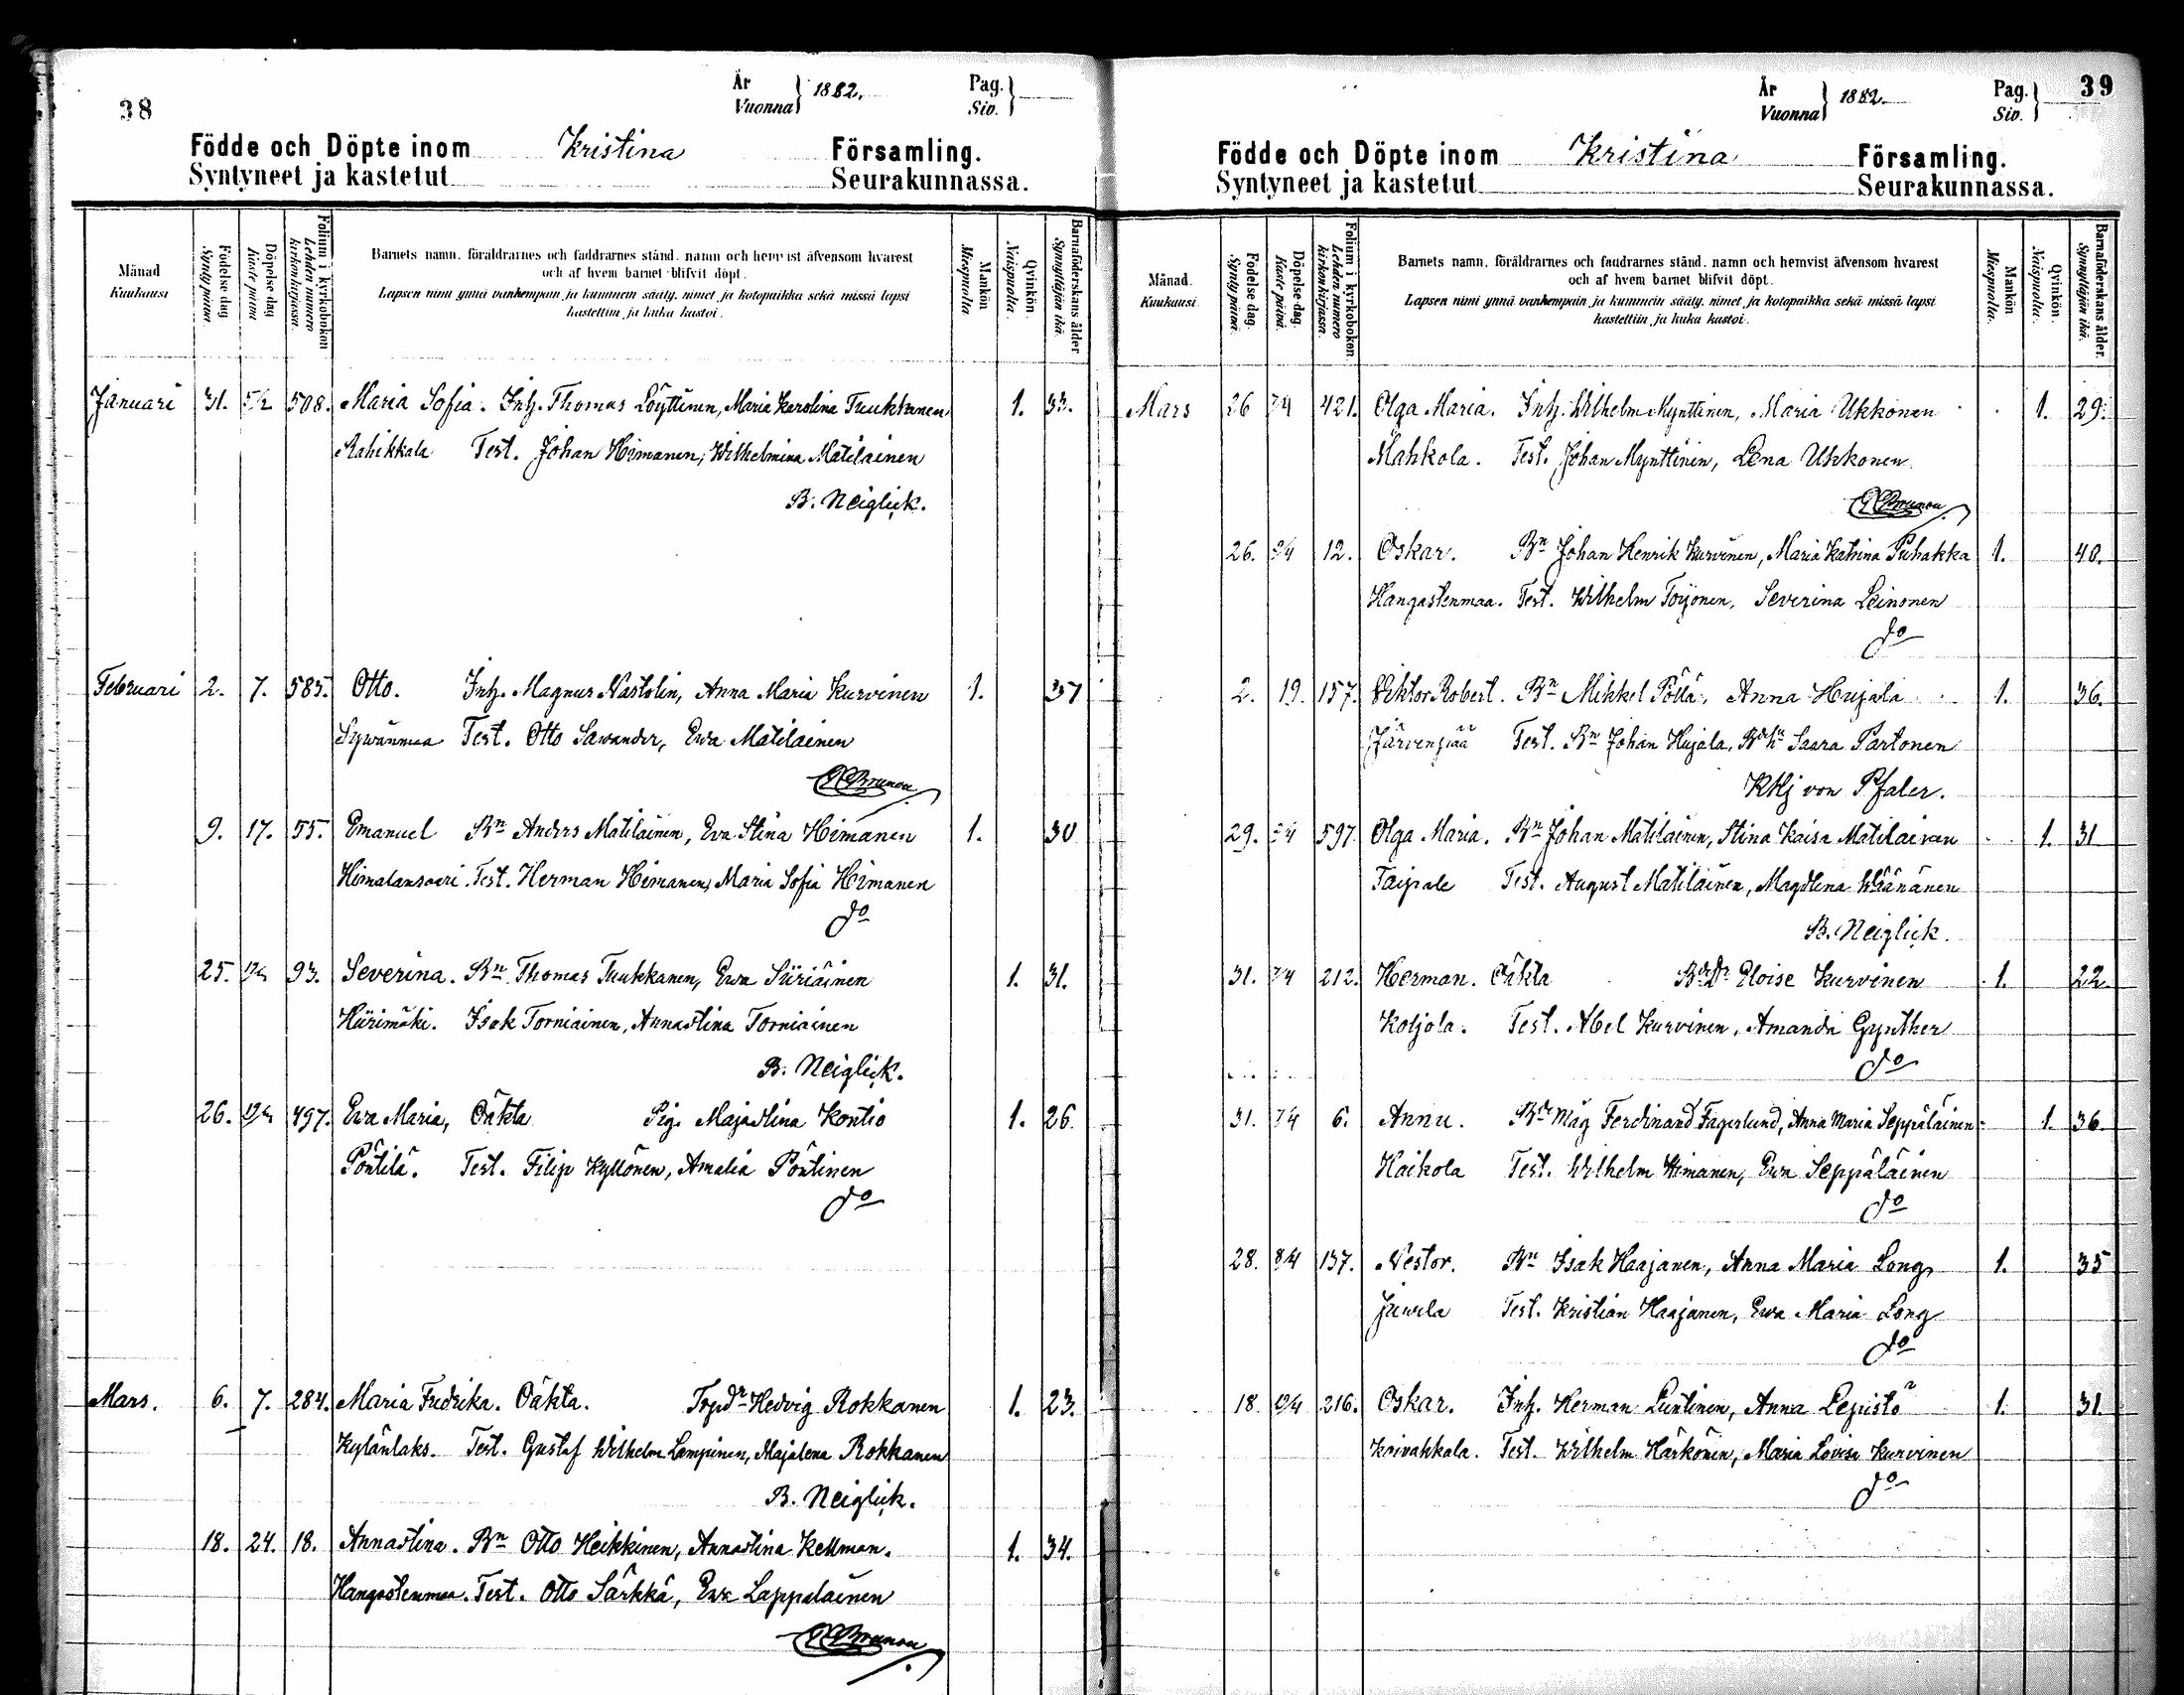 38
År
Vuonna } 1882.
Pag.
Siv. }
Födde och Döpte inom Kristina Församling.
Syntyneet ja kastetut Seurakunnassa.
Månad
Kuukausi
Födelse dag
Synty päivä
Döpelse dag
Kaste päivä
Folium i kyrkoboken
Lehden numero kirkonkirjassa.
Barnets namn, föräldrarnes och faddrarnes stånd, namn och hemvist äfvensom hvarest
och af hvem barnet blifvit döpt.
Lapsen nimi ynnä vanhempain ja kummein sääty, nimet ja kotopaikka sekä missä lapsi
kastettiin ja kuka kastoi.
Mankön
Miespuolia
Qvinkön.
Naispuolia.
Barnaföderskans ålder.
Synnyttäjän ikä.
Januari 31. 5/2 508. Maria Sofia. Inh. Thomas Löyttinen, Maria Karolina Tuukkanen 1. 33.
Rahikkala Test. Johan Himanen, Wilhelmina Matilainen
B. Neiglick.
Februari 2. 7. 585. Otto. Inh. Magnus Nastolin, Anna Maria Kurvinen 1. 37
Test. Otto Sawander, Ewa Matilainen
Brunou
9. 17. 55. Emanuel Bn Anders Matilainen, Eva Stina Himanen 1. 30
Himalansaari. Test. Herman Himanen, Maria Sofia Himanen
do
25. 93. Severina. Bn Thomas Tuukkanen, Ewa Siiriäinen 1. 31.
Hiirimäki. Isak Torniainen, Annastina Torniainen
B. Neiglick.
26. 497. Ewa Maria, Oäkta Pig. Majastina Kontio 1. 26.
Pöntilä. Test. Filip Kyllönen, Amalia Pöntinen
do
Mars. 6. 7. 284. Maria Fredrika. Oäkta. Trpdr Hedvig Rokkanen 1. 23.
Kylänlaks. Test. Gustaf Wilhelm Lempinen, Majalena Rokkanen
B. Neiglick.
18. 24. 18. Annastina. Bn Otto Heikkinen, Annastina Kellman. 1. 34.
Hangastenmaa. Test. Otto Särkkä, Ewa Lappalainen
Brunou
39
År
Vuonna } 1882.
Pag.
Siv. }
Födde och Döpte inom Kristina Församling.
Syntyneet ja kastetut Seurakunnassa.
Månad.
Kuukausi.
Födelse dag.
Synty päivä.
Döpelse dag.
Kaste päivä.
Folium i kyrkoboken.
Lehden numero kirkonkirjassa.
Barnets namn, föräldrarnes och faddrarnes stånd, namn och hemvist äfvensom hvarest
och af hvem barnet blifvit döpt.
Lapsen nimi ynnä vanhempain ja kummein sääty, nimet ja kotopaikka sekä missä lapsi
kastettiin ja kuka kastoi.
Mankön
Miespuolia.
Qvinkön.
Naispuolia.
Barnaföderskans ålder.
Synnyttäjän ikä.
Mars 26 421. Olga Maria. Inh. Wilhelm Mynttinen, Maria Ukkonen 1. 29.
Mahkola. Test. Johan Mynttinen, Lena Ukkonen
Brunou
26. 12. Oskar. Bn Johan Henrik Kurvinen, Maria Katrina Puhakka 1. 40.
Hangastenmaa. Test. Wilhelm Toijonen, Severina Leinonen
do
2. 19. 157. Viktor Robert. Bn Mikkel Pöllä, Anna Hujala 1. 36.
Järvenpää Test. Bn Johan Hujala, Bdhn Saara Partonen
KHj von Pfaler.
29. 597. Olga Maria. Bn Johan Matilainen, Stina Kaisa Matilainen 1. 31
Taipale Test. August Matilainen, Magdlena Väänänen
B. Neiglick.
31. 7/4 212. Herman. Oäkta Bddr Eloise Kurvinen 1. 22.
Koljola. Test. Abel Kurvinen, Amanda Gynther
do
31. 7/4 6. Anna. Bdemåg Ferdinand Fagerlund, Anna Maria Seppäläinen 1. 36.
Haikola Test. Wilhelm Himanen, Ewa Seppäläinen
do
28. 8/4 137. Nestor. Bn Isak Haajanen, Anna Maria Long 1. 35
Juurla Test. Kristian Haajanen, Ewa Maria Long
do
18 216. Oskar. Inh. Herman Luntinen, Anna Lepistö 1. 31.
Koivakkala. Test. Wilhelm Härkönen, Maria Lovisa Kurvinen
do